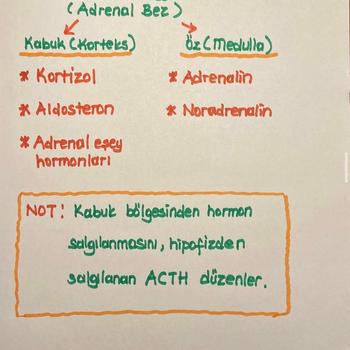 (Adrenal Bez)
Kabuk (Korteks) Öz (Medulla)
* Kortizol * Adrenalin
* Aldosteron * Noradrenalin
* Adrenal eşey
hormonları
NOT! Kabuk bölgesinden hormon
salgılanmasını, hipofizden
salgılanan ACTH düzenler.